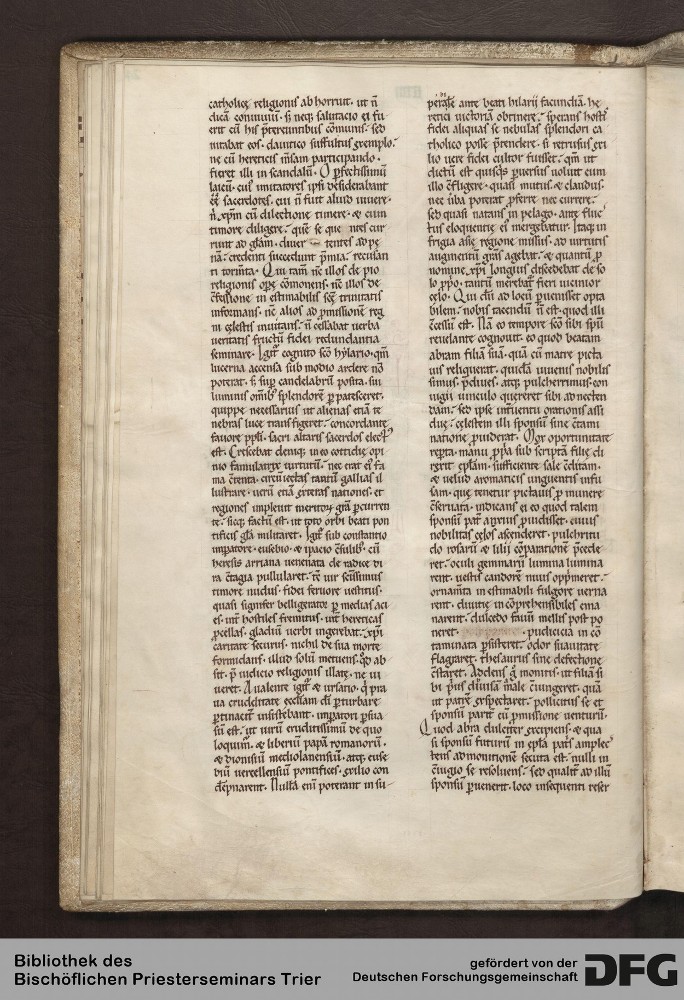 catholicę religionis abhorruit. ut ñ
dicā conuiuiū. s; neq; salutacio ei fu
erit cū his p̄tereuntibus cōmunis. sed
uitabat eos. dauitico suffultus exemplo.
ne cū hereticis m̄sam participando.
fieret illi in scandalū. O ꝑfectissimū
laicū. cuı̉ imitatores ipsi desiderabant
e͞e sacerdotes. cui ñ fuit aliud uiuere.
ñ. xp̄m cū dilectione timere. & cum
timore diligere. quē se que ntes cur
runt ad gl̄am. diuer tentes ad pę
nā. credenti succedunt p̄mia. recusan
ti torm̄ta. Qui tam̄ nē illos de pio
religionis ope cōmonens. nē illos de
c̄fessione in estimabilis scę trinitatis
informans. nē alios ad ꝓmissionē reg
ni cęlestis inuitans. ñ cessabat uerba
ueritatis fructū fidei redundantia
seminare. Igit̃ cognito scō hylario. qm̄
lucerna accensa sub modio ardere nō
poterat. s; sup candelabrū posita. sui
luminis omīb; splendorē ꝑpatesceret.
quippe necessarius ut alienas etiā te
nebras luce transfigeret. concordante
fauore ppl̄i. sacri altaris sacerdos elect;
est. Crescebat deniq; in eo cottidie opi
nio famulatrix uirtutū. nec erat ei; fa
ma c̄tenta. circūiectas tantū gallias il
lustrare. uerū etiā exteras nationes. et
regiones impleuit meritoꝝ gr̄a ꝑcurren
te. sicq; factū est. ut toto orbi beati pon
tificis gl̄a militaret. Igit̃ sub constantio
impatore. eusebio. & ipacio c̄sulib;. cū
heresis arriana uenenata de radice vi
ra c̄tagia pullularet. tē uir sc̄issimus
timore nudus. fidei feruore uestitus.
quasi signifer belligerator ꝑ medias aci
es. int̃ hostiles fremitus. int̃ hereticas
ꝓcellas. gladiū uerbi ingerebat. xpī
caritate securus. nichil de sua morte
formidans. illud solū metuens. qd̄ ab
sit. p̄ iudicio religionis illatę. ne ui
ueret. A ualente igit̃ & ursatio. q̄ pra
ua crudelitate ęccliam dī ꝑturbare
ꝑtinacit̃ insistebant. impatori ꝑsua
sū est. ut uirū eruditissimū de quo
loquim̃. & liberiū papā romanorū.
& dionisiū mediolanensiū. atq; euse
biū uercellensiū pontifices. exilio con
dēpnarent. Nulla em̄ poterant in su
perasse ante beati hilarij facundiā. he
retici uictoriā obtinere. sperans hostis
fidei aliquas se nebulas splendori ca
tholico posse p̄tendere. si retrusus exi
lio uere fidei cultor fuisset. qm̄ ut
dictū est quisq;s ꝑuersus uoluit cum
illo c̄fligere. quasi mutus. & claudus.
nec ūba poterat ꝓferre nec currere.
sed quasi natans in pelago. ante fluc
tus eloquentię ei; mergebatur. Itaq; in
frigia asię regione missus. ad uirtutis
augm̄tū gr̄as agebat. & quantū ꝑ
nomine xpī longius discedebat de so
lo ꝓpo. tantū merebat̃ fieri uicinior
cęlo. Qui dū ad locū ꝑuenisset opta
bilem. nobis tacendū ñ est. quod illi
c̄cessū est. Nā eo tempore scō sibi spū
reuelante cognouit. eo quod beatam
abram filiā suā. quā cū matre picta
uis reliquerat. quidā iuuenis nobilis
simus. p̄diues. atq; pulcherrimus. con
iugii uinculo quereret sibi adnecten
dam. sed ipse int̃uentu orationis assi
due. cęlestem illi sponsū sine c̄tami
natione ꝓuiderat. Mox oportunitate
repta. manu ꝓpa sub scriptā filię di
rexit epl̄am. sufficiente sale c̄ditam.
& uelud aromaticis unguentis infu
sam. que tenetur pictauis ꝓ munere
c̄seruata. indicans ei eo quod talem
sponsū pat̃ aptius ꝓuidisset. cuius
nobilitas cęlos ascenderet. pulchritu
do rosarū & lilij c̄parationē p̄cede
ret. oculi gemmarū lumina lumina
rent. uestis candorē niuis opp̄meret.
ornam̄ta in estimabili fulgore uerna
rent. diuitię in c̄prehensibiles ema
narent. dulcedo fauū mellis post po
neret. pudicicia in cō
taminata ꝑsisteret. odor suauitate
flagraret. thesaurus sine defectione
c̄staret. Addens q̄ monitis. ut filia si
bi p̄us diuisā m̄ale c̄iungeret. quā
ut patrē exspectaret. pollicitus se et
sponsū parit̃ cū ꝓmissione uenturū.
Quod abra dulcit̃ excipiens. & qua
si sponsū futurū in epl̄a pat̃s amplec
tens ad monitionē secuta est. nulli in
c̄iugio se resoluens. sed qualit̃ ad illū
sponsū ꝑuenerit. loco insequenti reser
Bibliothek des
Bischöflichen Priesterseminars Trier
gefördert von der
Deutschen Forschungsgemeinschaft
DFG